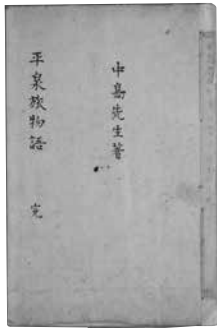 中嶌先生著
平泉旅物語 完